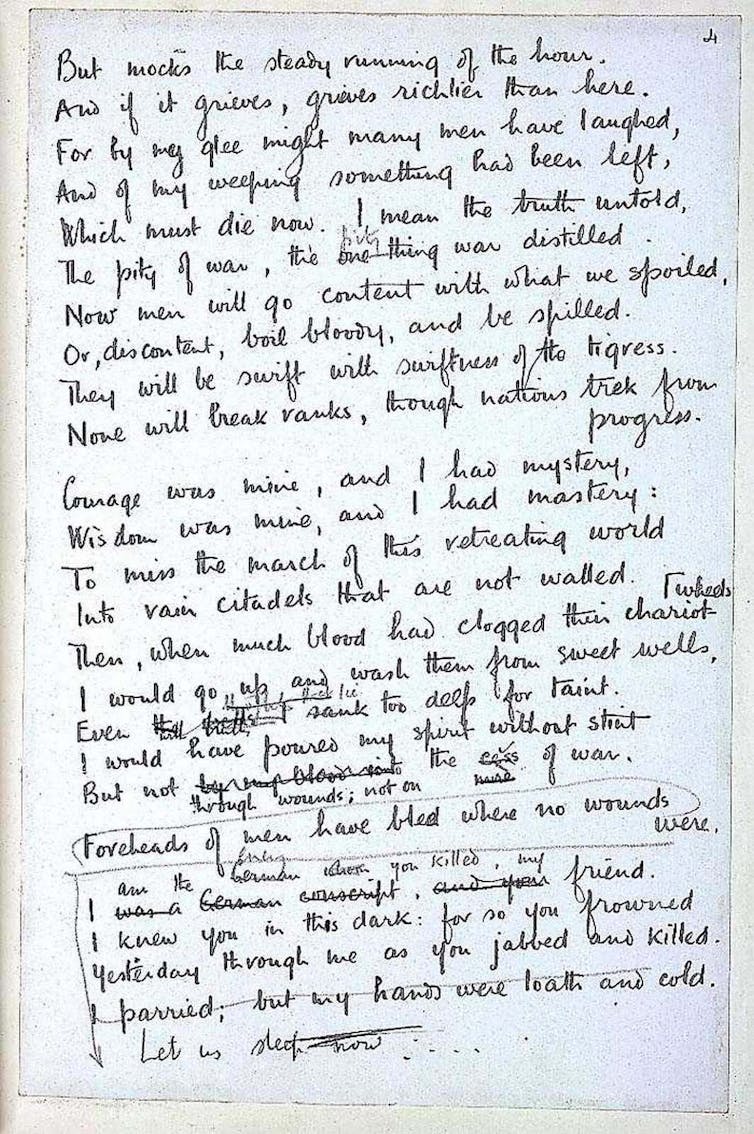 4
But mocks the steady running of the hour.
And if it grieves, grieves richlier than here.
For by my glee might many men have laughed,
And of my weeping something had been left,
Which must die now. I mean the truth untold,
pity
The pity of war, the one thing war distilled.
Now men will go content with what we spoiled,
Or, discontent, boil bloody, and be spilled.
They will be swift with swiftness of the tigress.
None will break ranks, though nations trek from
progress.
Courage was mine, and I had mystery,
Wisdom was mine, and I had mastery:
To miss the march of this retreating world
Into vain citadels that are not walled.
Then, when much blood had clogged their chariot-
wheels
I would go up, and wash them from sweet wells,
Even the wells I sank too deep for taint.
I would have poured my spirit without stint
But not by my blood into the cess of war.
through wounds; not on
Foreheads of men have bled where no wounds
were.
enemy
am the German whom you killed, my
I was a German conscript, and your friend.
I knew you in this dark: for so you frowned
Yesterday through me as you jabbed and killed.
I parried; but my hands were loath and cold.
Let us sleep now .....